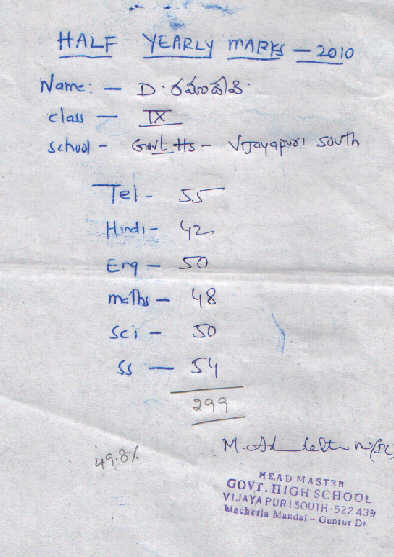 HALF YEARLY MARKS - 2010
Name: - D. రమాదేవి
class - IX
school - Govt. Hs - Vijayapuri South
Tel - 55
Hindi - 42
Eng - 50
maths - 48
sci - 50
ss - 54
299
49.8%
HEAD MASTER
GOVT. HIGH SCHOOL
VIJAYAPURI SOUTH-522 439
Macherla Mandal - Guntur Dt